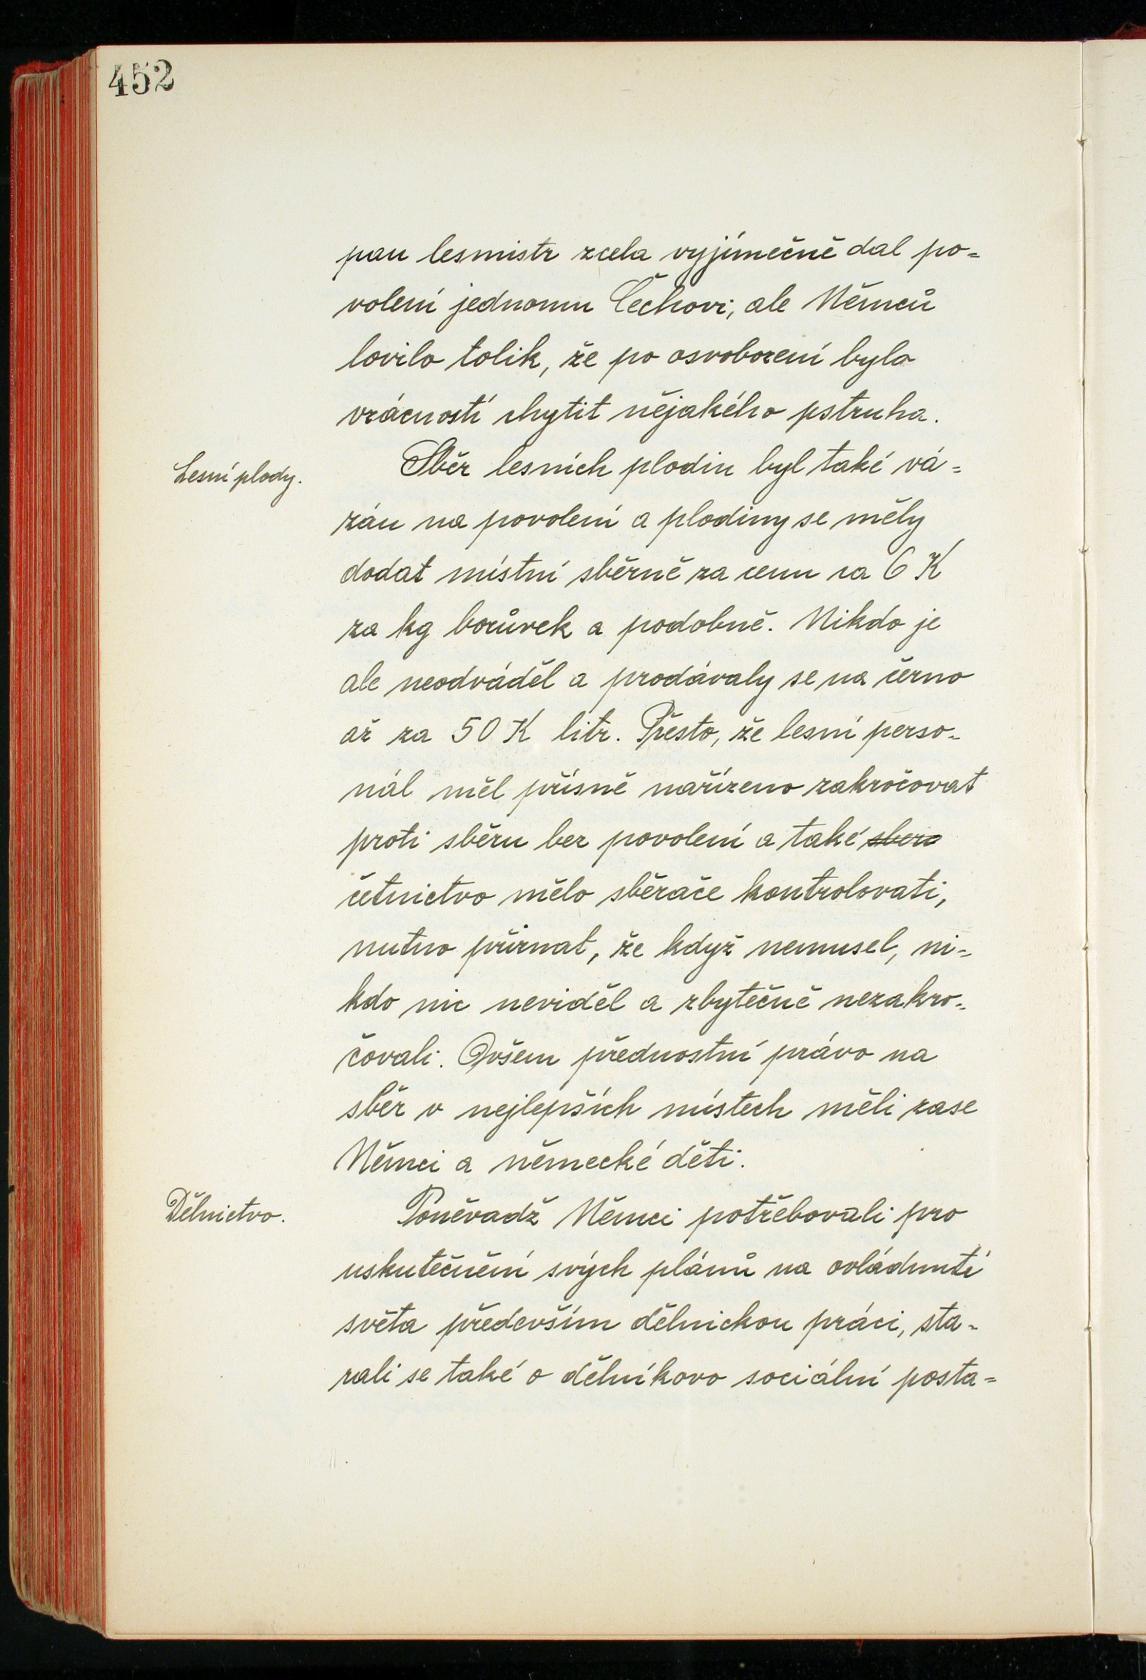 452
pan lesmistr zcela vyjímečně dal po-
volení jednomu Čechovi, ale Němců
lovilo tolik, že po osvobození bylo
vzácností chytit nějakého pstruha.
Lesní plody.
Sběr lesních plodin byl také vá-
zán na povolení a plodiny se měly
dodat místní sběrně za cenu ca 6 K
za kg borůvek a podobně. Nikdo je
ale neodváděl a prodávaly se na černo
až za 50 K litr. Přesto, že lesní perso-
nál měl přísně nařízeno zakročovat
proti sběru bez povolení a také sbera
četnictvo mělo sběrače kontrolovati,
nutno přiznat, že když nemusel, ni-
kdo nic neviděl a zbytečně nezakro-
čovali. Ovšem přednostní právo na
sběr v nejlepších místech měli zase
Němci a německé děti.
Dělnictvo.
Poněvadž Němci potřebovali pro
uskutečnění svých plánů na ovládnutí
světa především dělnickou práci, sta-
rali se také o dělníkovo sociální posta-